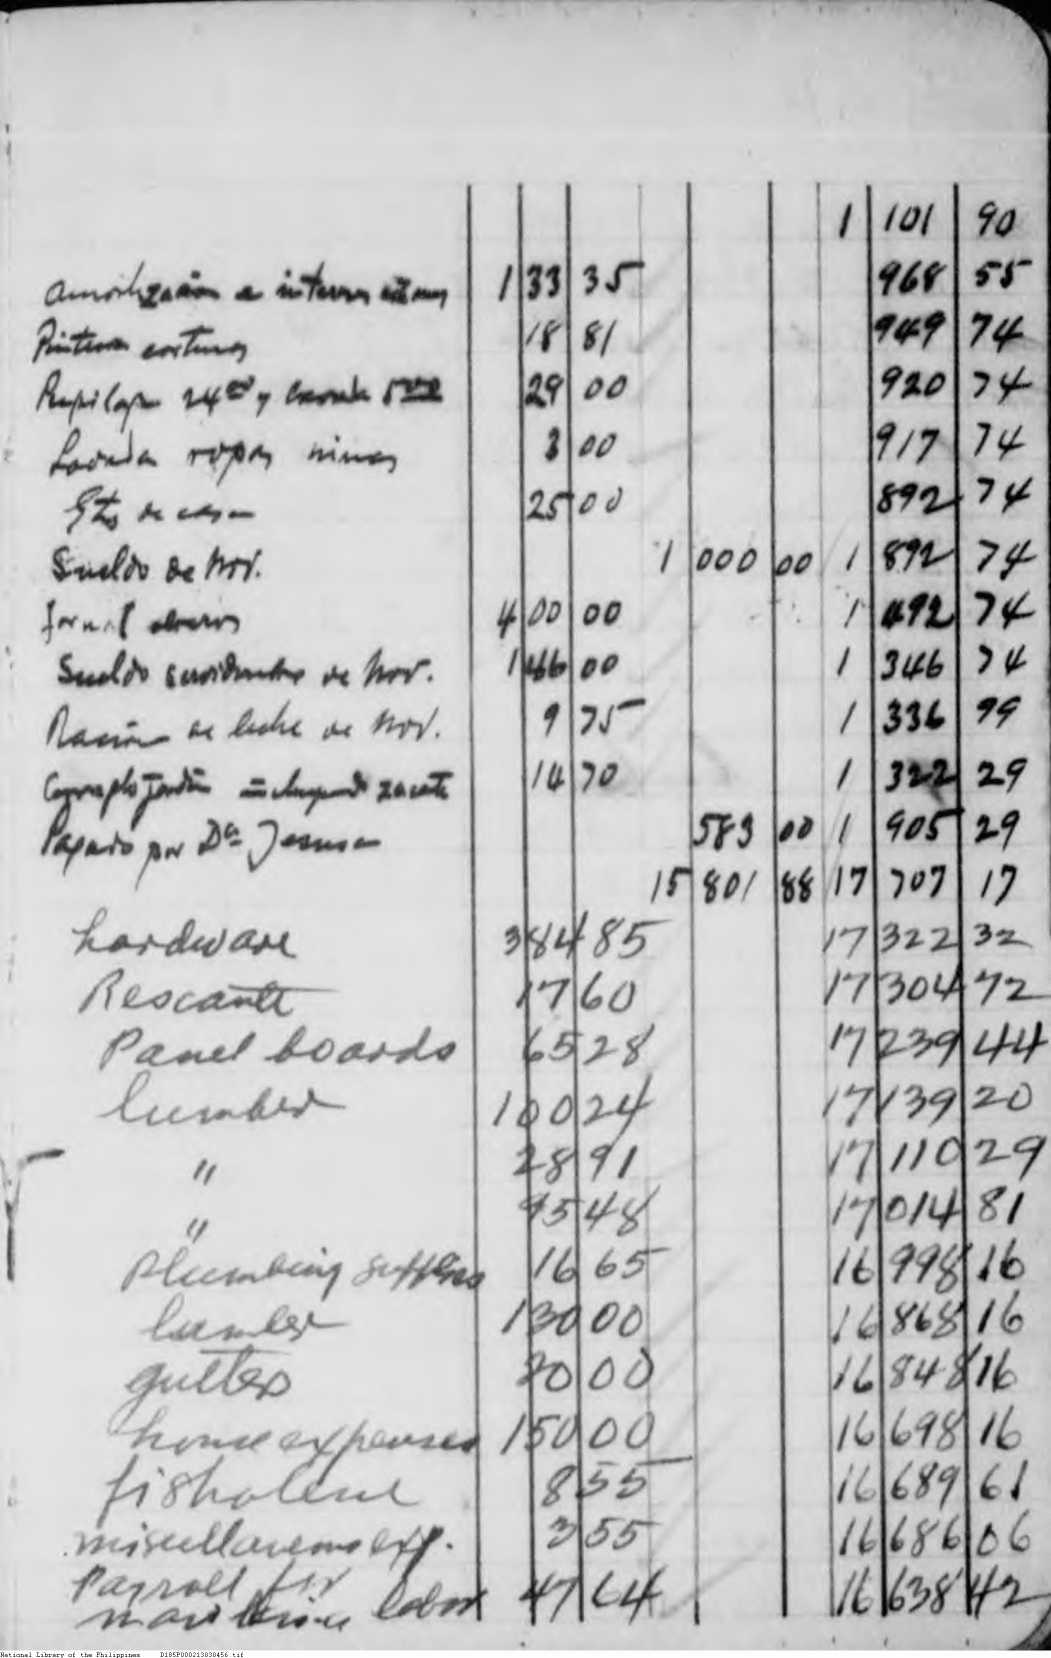 1 101 90
Amortización e intereses 133 35 968 55
Pintura cortinas 18 81 949 74
24.00 y 5.00 29 00 920 74
Lavada ropas 3 00 917 74
Gtos de casa 25 00 892 74
Sueldo de Nov. 1 000 00 1 892 74
Jornal obreros 400 00 1 492 74
Sueldo servidumbre de Nov. 146 00 1 346 74
Ración de leche de Nov. 9 75 1 336 99
jardín incluyendo zacate 14 70 1 322 29
Pagado por Da Jesusa 583 00 1 905 29
15 801 88 17 707 17
hardware 384 85 17 322 32
Rescante 17 60 17 304 72
Panel boards 65 28 17 239 44
lumber 100 24 17 139 20
" 28 91 17 110 29
" 95 48 17 014 81
Plumbing supplies 16 65 16 998 16
lumber 130 00 16 868 16
gutters 20 00 16 848 16
house expenses 150 00 16 698 16
fisholene 8 55 16 689 61
miscellaneous exp. 3 55 16 686 06
Payroll for
labor 47 64 16 638 42
National Library of the Philippines D185P000213838456.tif